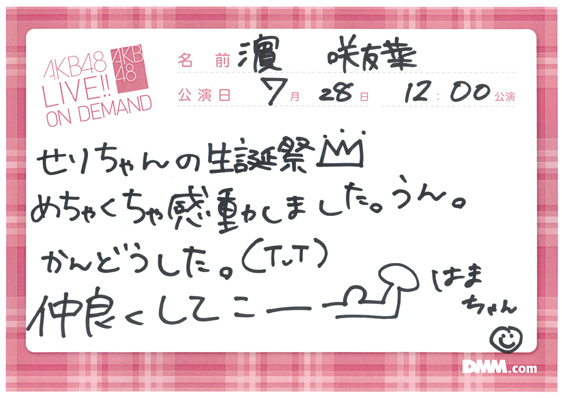 AKB48
LIVE!!
ON DEMAND
AKB
48
名前 濵 咲友菜
公演日 7月 28日 12:00公演
せりちゃんの生誕祭
めちゃくちゃ感動しました。うん。
かんどうした。(TvT)
仲良くしてこー
はま
ちゃん
DMM.com